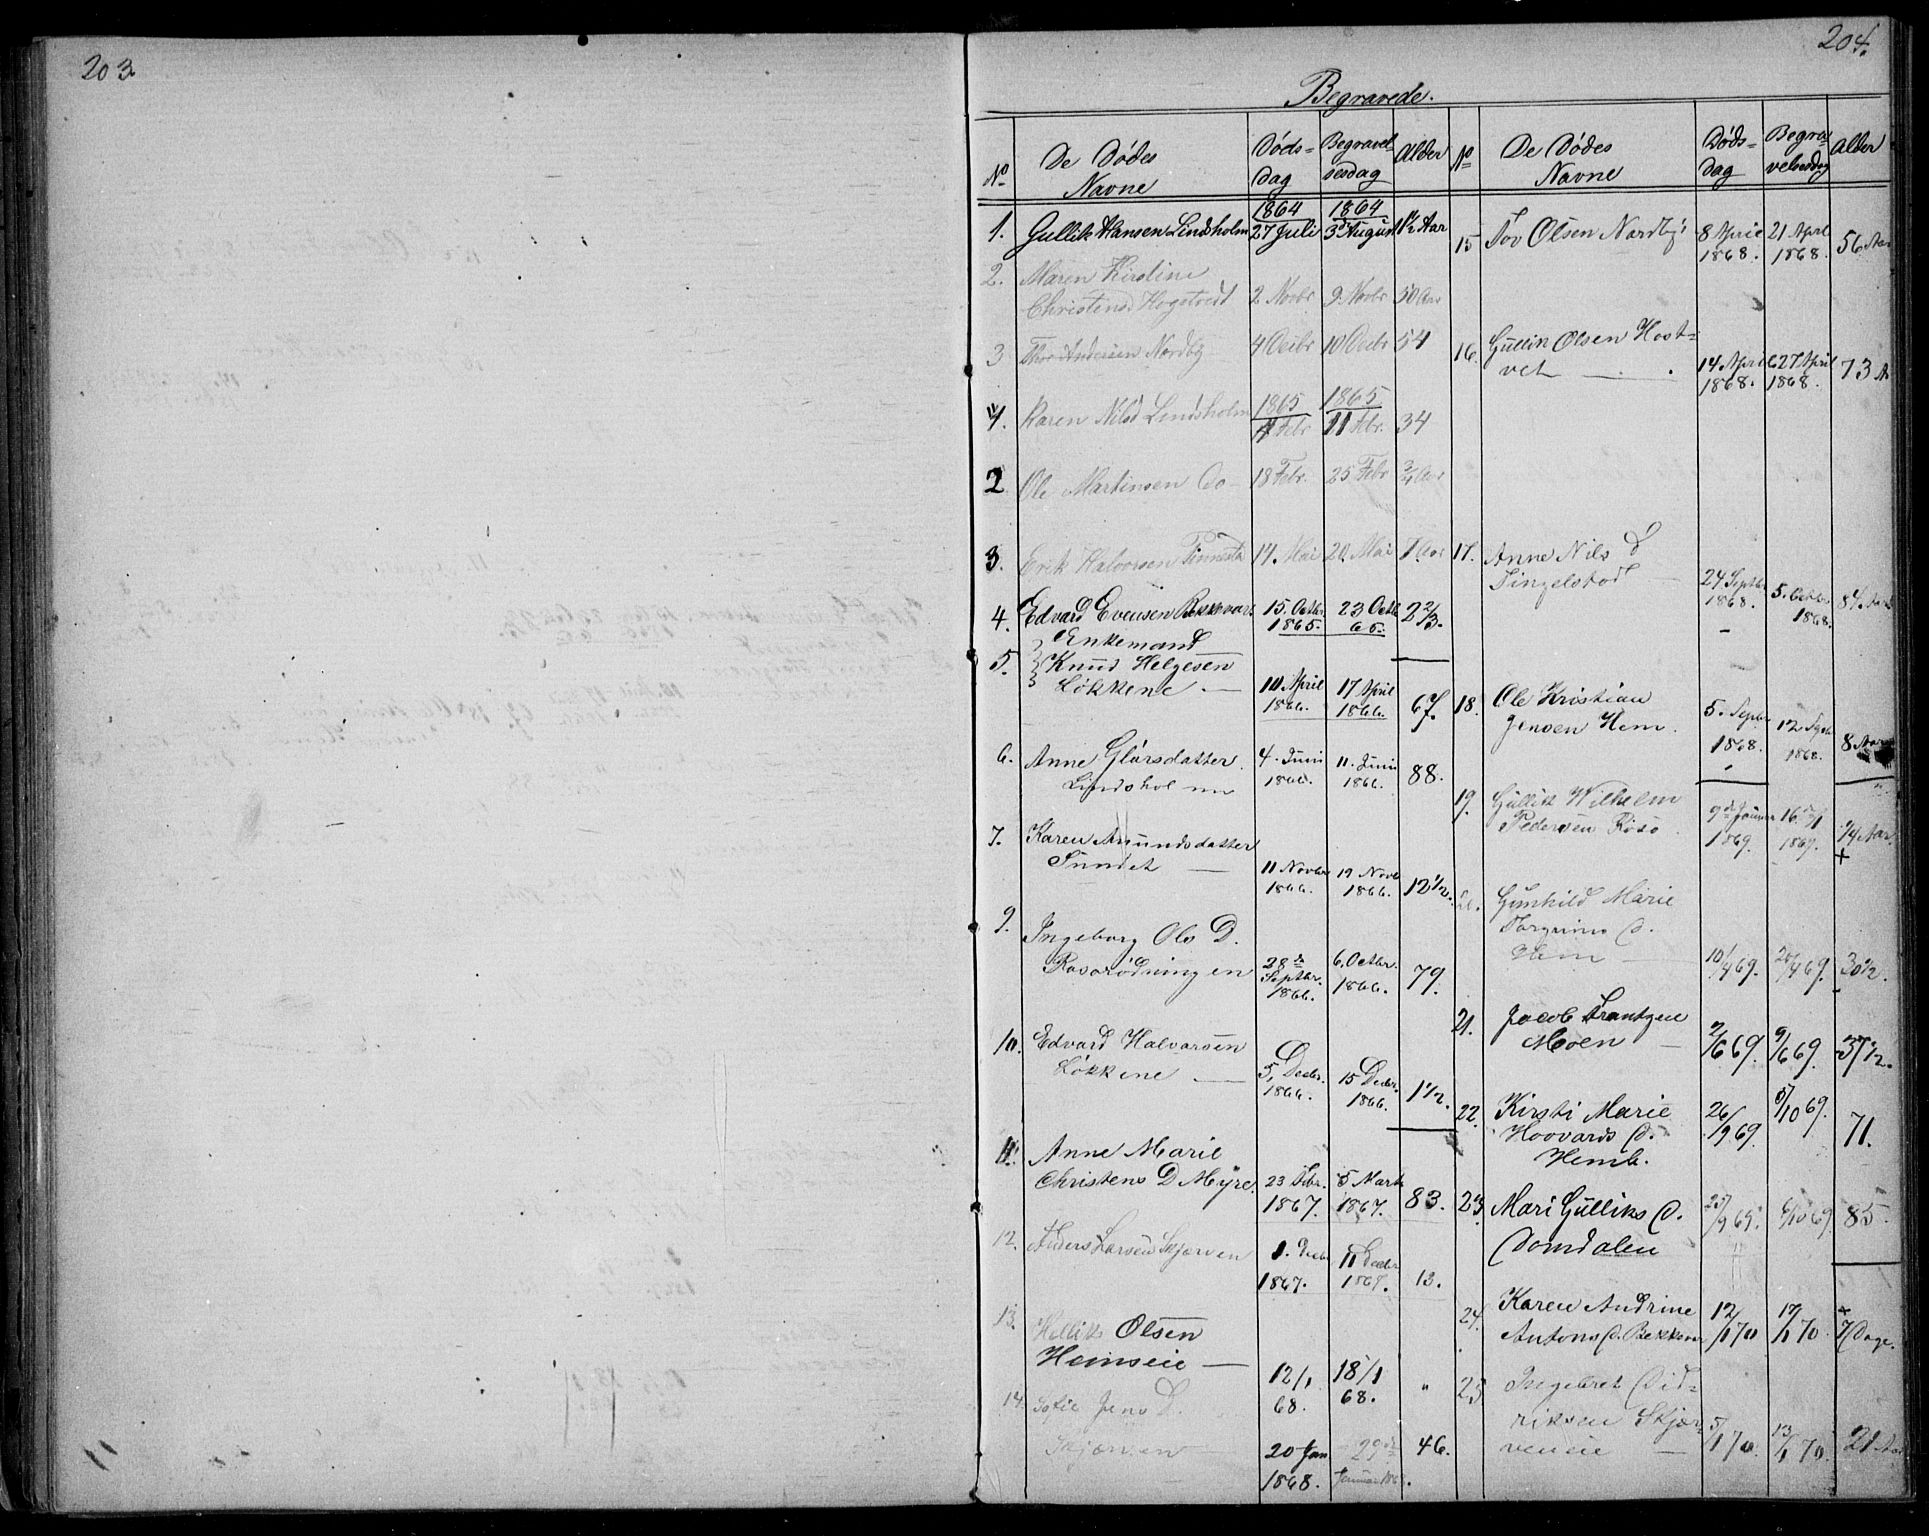 203
204.
Begravede.
No
De Dödes
Navne
Döds=
dag
Begravel=
sesdag
Alder
1.
Gullik Hansen Lindsholm
1864
27 Juli
1864
3 August
1½ Aar
2.
Maren Kirstine
Christensd Hogstvedt
2. Novbr
9. Novbr
50 Aar
3
Thor Andersen Nordby
4 Decbr
10 Decbr
54
1.
Karen Nilsd Lindsholm
1865
4 Febr
1865
11 Febr.
34
2
Ole Martinsen Do
18 Febr.
25 Febr
¾ Aar
3.
Erik Halvorsen
14. Mai
20. Mai
7 Aar
4.
Edvard Evensen
15. Octbr
1865.
23 Octb
65.
2⅔.
5.
Enkemand
Knud Helgesen
Lökkene
10 April
1866.
17 April
1866.
67.
6.
Anne Glörsdatter
Lindsholm
4. Juni
1866.
11. Juni
1866.
88.
7.
Karen Amundsdatter
Sundet
11 Novbr
1866.
19 Novb
1866.
12½.
9.
Ingeborg Ols D.
28de
Septbr.
1866.
6. Octbr.
1866.
79.
10.
Edvard Halvorsen
Lökkene
5. Decbr.
1866.
15 Decbr.
1866.
1½.
11.
Anne Marie
Christens D Myre.
23 Febr.
1867.
5 Marts
1867.
83.
12.
Anders Larsen Skjørven
1. Decbr
1867.
11 Decbr
1867.
13.
13.
Hellik Olsen
Hemseie
12/1
68.
18/1
68.
"
14.
Sofie Jens D.
Skjørven
20 Jan
1868.
29de
Januar 186
46.
No
De Dödes
Navne
Döds=
dag
Begra=
velsesdag
Alder
15
Tov Olsen Nordby
8 April
1868.
21 April
1868.
56 Aar
16.
Gullik Olsen Host=
vet
14 April
1868.
27 April
1868.
73 A
17.
Anne Nils d
Tingelstad
24 Septbr
1868.
5. Octbr
1868.
84 Aar
18.
Ole Kristian
Jensen Hem.
5. Septbr
1868.
12 Septb
1868.
8 Aar
19.
Gullik Wilhelm
Pedersen
9de Januar
1869.
16de/1
1869.
¼ Aar.
20.
Gunhild Marie
Torgrims D.
Hem
10/4 69.
20/4 69.
30½.
21.
Jacob Frantzen
Moen
2/6 69.
9/6 69.
57½.
22.
Kirsti Marie
Hoovards D.
Hemb.
26/9 69.
5/10 69.
71.
23.
Mari Gulliks D.
Domdalen
25/9 69.
6/10 69
85.
24.
Karen Andrine
Antons D.
12/1 70
17/1 70.
7 Dage.
25
Ingebret Did=
riksen Skjør=
veneie
5/1 70.
13/1 70.
21 Aar